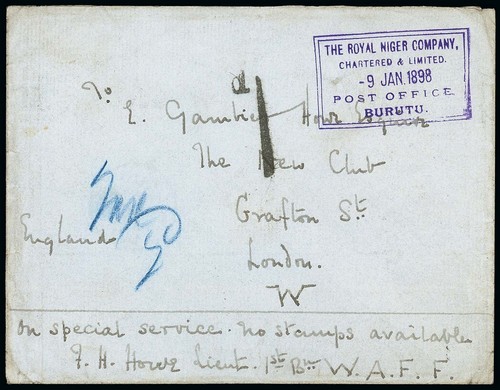 THE ROYAL NIGER COMPANY,
CHARTERED & LIMITED.
-9 JAN. 1898
POST OFFICE
BURUTU.
To
E. Gambier Howe Esquire
The New Club
Grafton St.
London.
W
England
On special service. No stamps available
F. H. Howe Lieut. 1st Bn W.A.F.F.